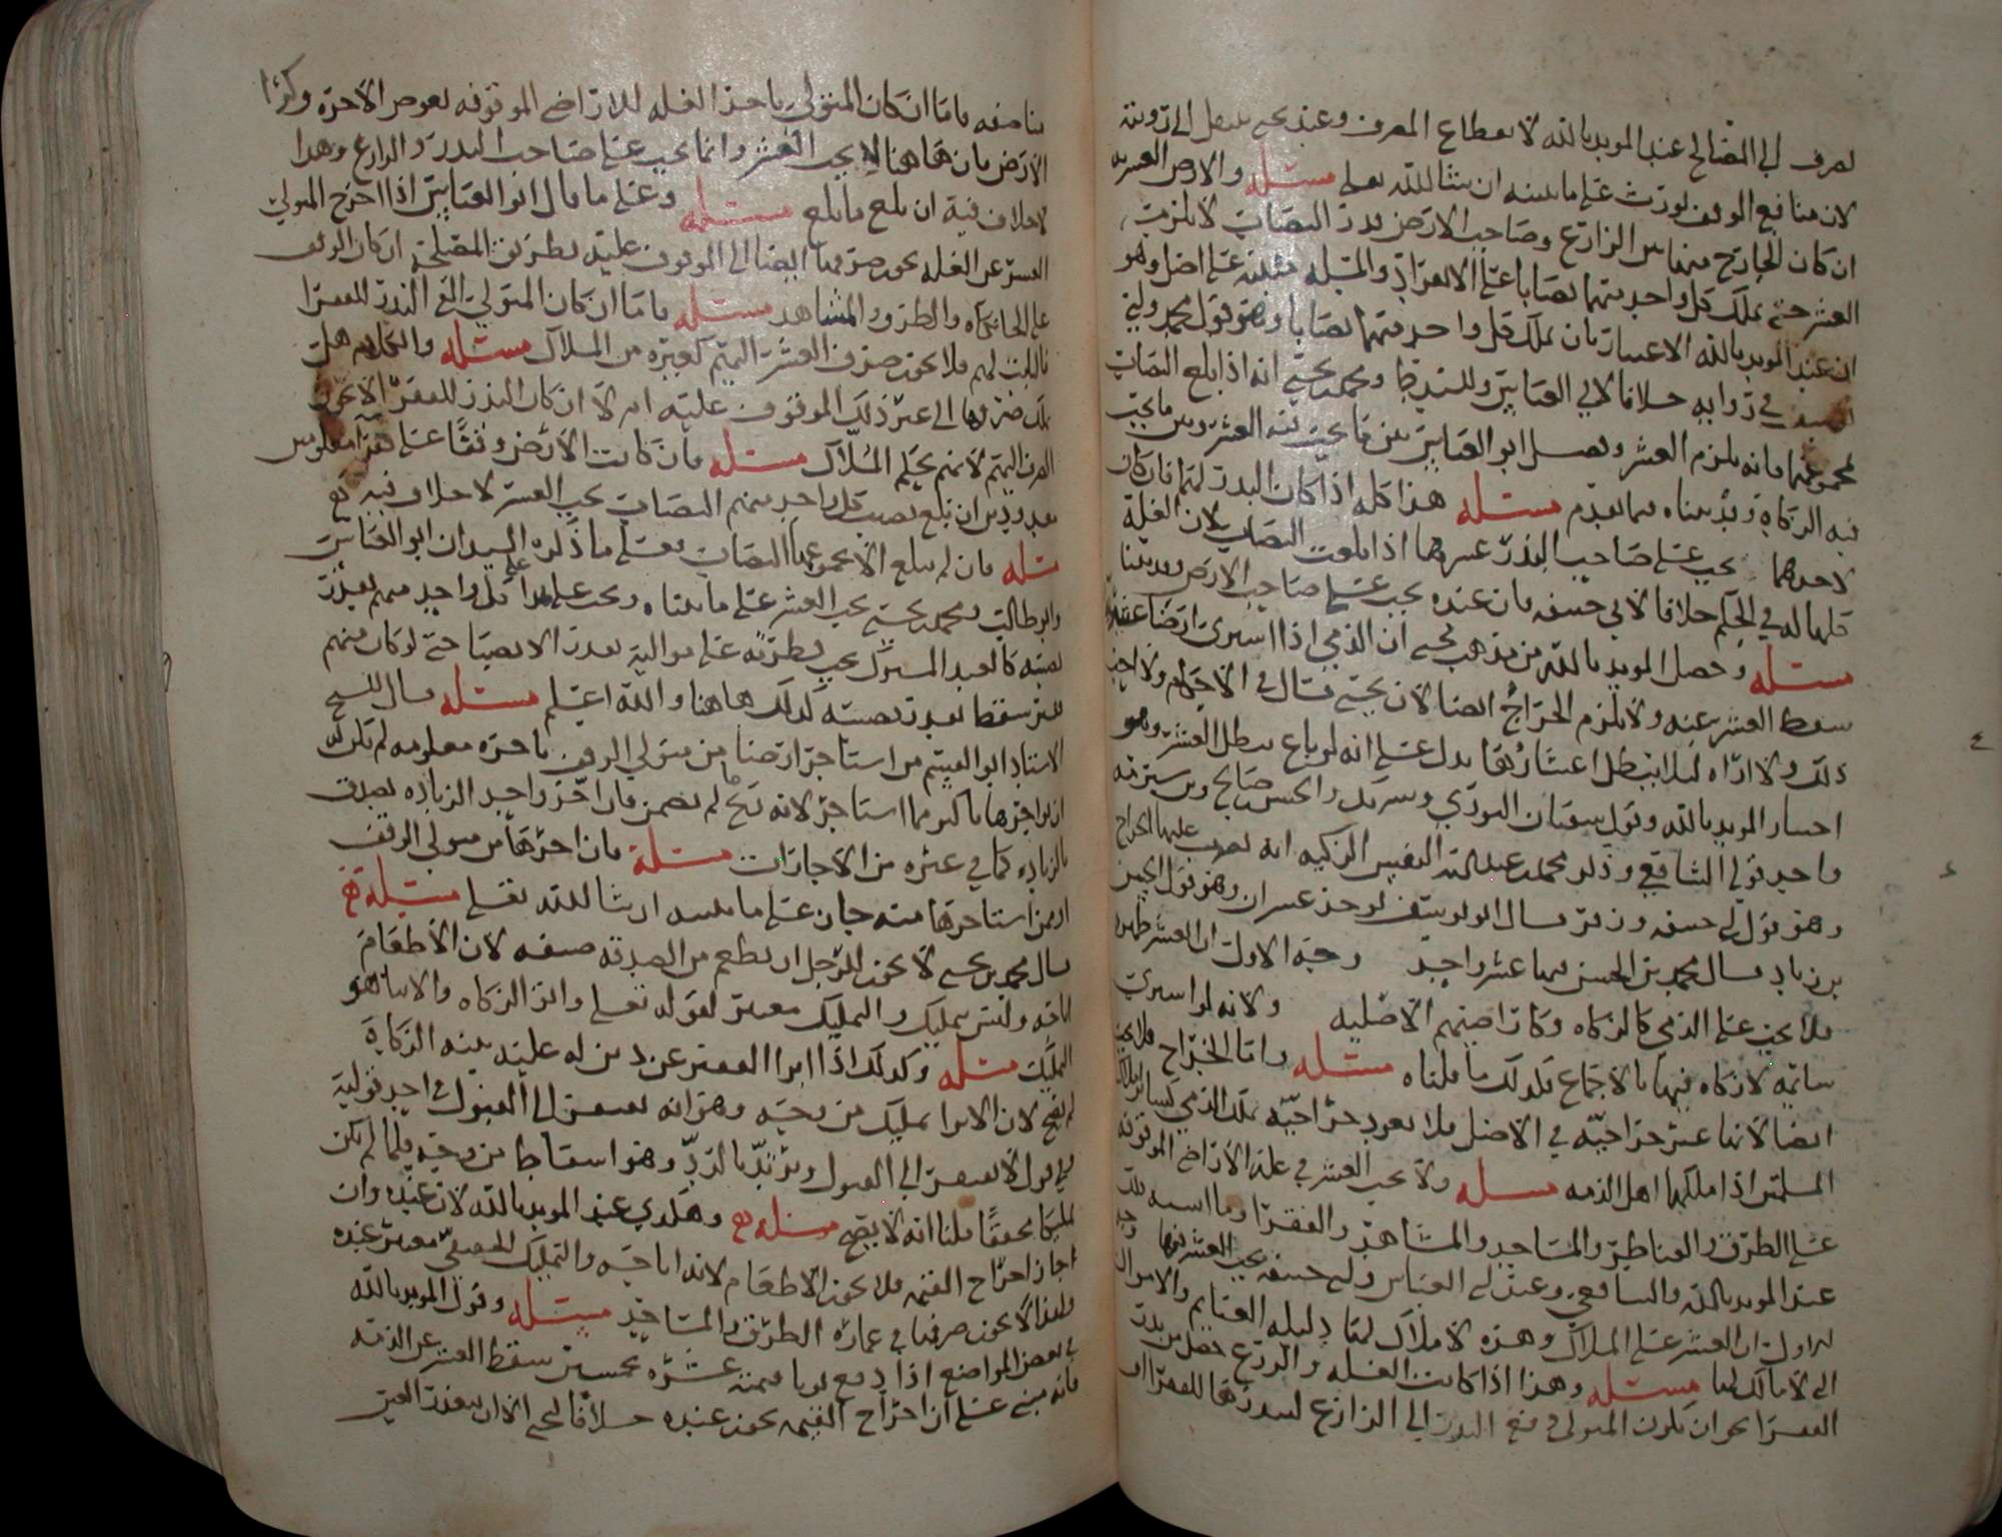 لصرف الى المصالح عند المويد بالله لانقطاع المصرف وعند يحيى ينتقل الى ورثته
لان منافع الوقف تورث على ما نبينه ان شا الله تعالى مسئله والارض العشريه
ان كان الخارج منها بين الزارع وصاحب الارض بدر النصاب لا يلزمه
العشر حتى يملك كل واحد منهما نصابا على الانفراد والمسله مبنيه على اصل وهو
ان عند المويد بالله الاعتبار بان يملك كل واحد منهما نصابا وهو قول محمد وابي
في زوايه خلافا لابي العباس وللسيد ط ومحمد يحيى انه اذا بلغ النصاب
مجموعهما فانه يلزم العشر وفصل ابو العباس بين ما يجب فيه العشر وبين ما يجب
فيه الزكاه وقد بيناه فيما تقدم مسئله هذا كله اذا كان البدر لهما فان كان
لاحدهما يجب على صاحب البذر عشرهما اذا بلغت النصاب لان الغلة
كلها له في الحكم خلافا لابي حنيفه فان عنده يجب على صاحب الارض وقد بينا
مسئله وحصل المويد بالله من مذهب يحيى ان الذمي اذا اشترى ارضا عشريه
سقط العشر عنه ولا يلزم الخراج ايضا لان يحيى قال في الاحكام ولا احب
ذلك ولا اراه لئلا يبطل اعشارها فدل على انه لو باع بطل العشر وهو
اختيار المويد بالله وقول سفيان الثوري وشريك والحسن صالح وبن سبرمه
واحد قولي الشافعي وذكر محمد عبد الله النفس الزكيه انه يضرب عليها الخراج
وهو قول ابي حنيفه وزفر وقال ابو يوسف يوخذ عشران وهو قول الحسن
بن زياد وقال محمد بن الحسن فيها عشر واحد وجه الاول ان العشر طهره
فلا يجب على الذمي كالزكاه وكاراضيهم الاصليه ولانه لو اشترى
سائمه لا زكاه فيها بالاجماع فكذلك ما قلناه مسئله واما الخراج فلا يجب
ايضا لانها غير خراجيه في الاصل فلا تعود خراجيه بملك الذمي كسائر املاك
المسلمين اذا ملكها اهل الذمه مسله ولا يجب العشر في غلة الاراضي الموقوفه
على الطرق والقناطر والمساجد والمشاهد والفقرا وما اشبه ذلك
عند المويد بالله والشافعي وعند ابي العباس وابي حنيفه يجب العشر فيها وجه
الاول ان العشر على الملاك وهذه لا ملاك لها دليله الغنايم والاموال
التي لا مالك لها مسئله وهذا اذا كانت الغله والزرع حصل من بدر
الفقرا نحو ان يكون المتولي دفع البذر الى الزارع لبدرها للفقرا او
مناصفه فاما ان كان المتولي ياخذ الغله للاراضي الموقوفه لعوض الاجره وكرا
الارض فان ها هنا لا يجب العشر وانما يجب على صاحب البدر والزارع وهدا
لا خلاف فيه ان بلغ ما بلغ مسئله وعلى ما قال ابو العباس اذا اخرج المتولي
العشر عن الغله يجوز صرفها ايضا الى الموقوف عليه بطريق المصلحة ان كان الوقف
على والطرق والمشاهد مسئله فاما ان كان المتولي القى البذر للفقرا
لهم فلا يجوز صرف العشر اليهم كغيره من الملاك مسئله والكلام هل
يلك صرفها الى غير ذلك الموقوف عليه ام لا ان كان البذر للفقرا لا يجوز
الصرف اليهم لانهم بحكم الملاك مسئله فان كانت الارض وقفا على معلومين
معدودين ان بلغ نصيب كل واحد منهم النصاب يجب العشر لا خلاف فيه
مسله فان لم يبلغ الا مجموعها النصاب فعلى ما ذكره السيدان ابو العباس
وابو طالب ومحمد يحيى يجب العشر على ما بيناه ويجب على كل واحد منهم بقدر
نصيبه كالعبد المشترك يجب فطرته على مواليه بقدر الانصبا حتى لو كان منهم
سقط بقدر نصيبه كذلك هاهنا والله اعلم مسئله قال الشيخ
الاستاد ابو القسم من استاجر ارضا من متولي الوقف باجره معلومه لم يكن له
ان يواجرها باكثر مما استاجر لانه لم يضمن فان اجر واحد الزياده تصدق
بالزياده كما في غيره من الاجارات مسئلة فان اجرها من متولي الوقف
او ممن استاجرها منه جاز على ما نبينه ان شا الله تعالى مسئلة
قال محمد بن يحيى لا يجوز للرجل ان يطعم من الصدقه ضيفه لان الاطعام
اباحه وليس بتمليك والتمليك معتبر لقوله تعالى واتوا الزكاه والايتا هو
التمليك مسئله وكذلك اذا ابرا الفقير عن دين له عليه بنية الزكاة
لم يصح لان الابرا تمليك من وجه وهو انه يفتقر الى القبول في احد قوليه
قول لا يفتقر الى القبول ويرتد بالرد وهو اسقاط من وجه فلما لم يكن
تمليكا محققا قلنا انه لا يصح مسئله وهكدي عند المويد بالله لان عنده وان
اجاز اخراج القيمه فلا يجوز الاطعام لانه اباحه والتمليك معتبر عنده
ولهذا لا يجوز صرفها في عماره الطرق والمساجد مسئله وقول المويد بالله
في بعض المواضع اذا دفع ثوبا قيمته عشره بخمسين سقط العشر عن الذمه
فانه مبني على ان اخراج القيمه يجوز عنده خلافا ليحيى الا ان يتعذر العين